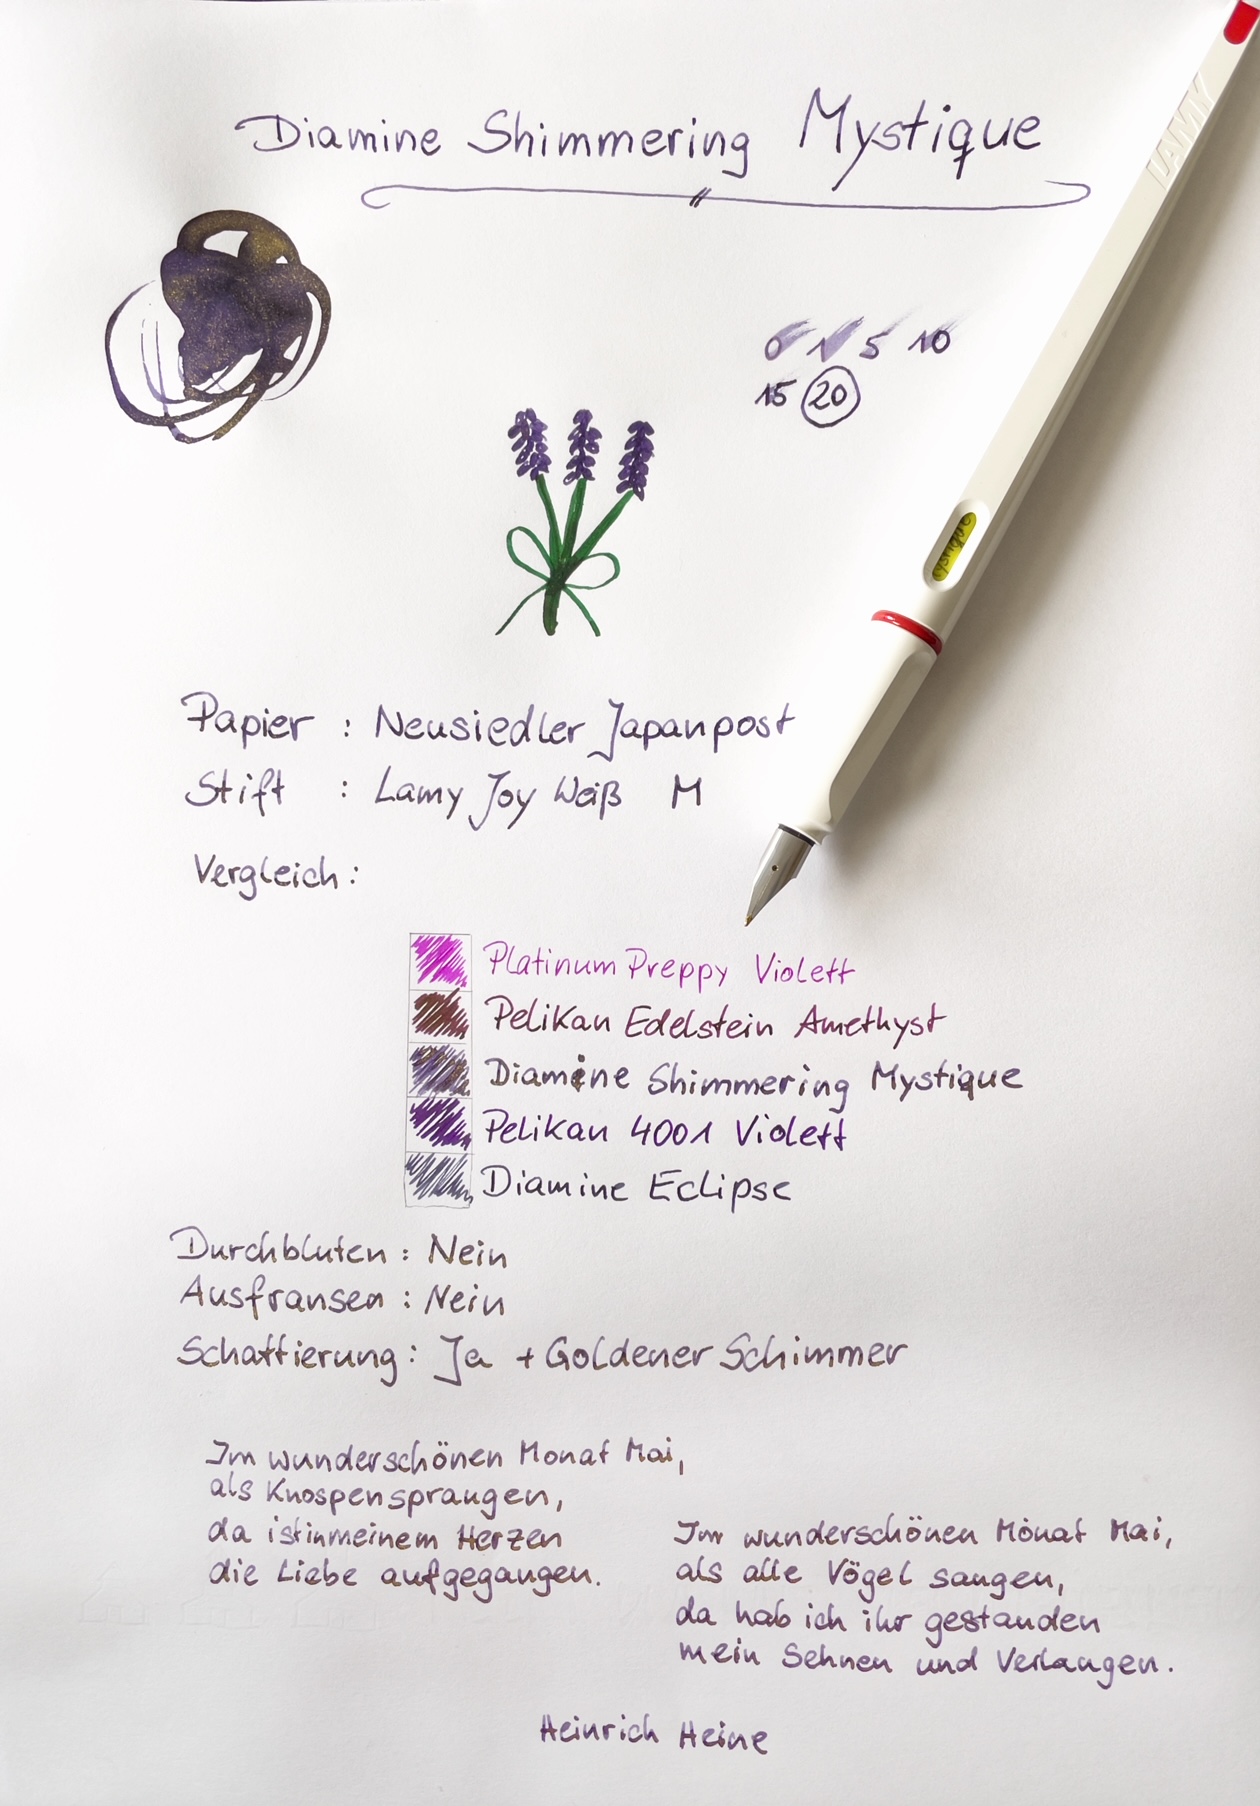 Diamine Shimmering Mystique
LAMY
0 1 5 10
15 20
ystique
Papier : Neusiedler Japanpost
Stift : Lamy Joy Weiß M
Vergleich :
Platinum Preppy Violett
Pelikan Edelstein Amethyst
Diamine Shimmering Mystique
Pelikan 4001 Violett
Diamine Eclipse
Durchbluten : Nein
Ausfransen : Nein
Schattierung : Ja + Goldener Schimmer
Im wunderschönen Monat Mai,
als Knospen sprangen,
da ist in meinem Herzen
die Liebe aufgegangen.
Im wunderschönen Monat Mai,
als alle Vögel sangen,
da hab ich ihr gestanden
mein Sehnen und Verlangen.
Heinrich Heine